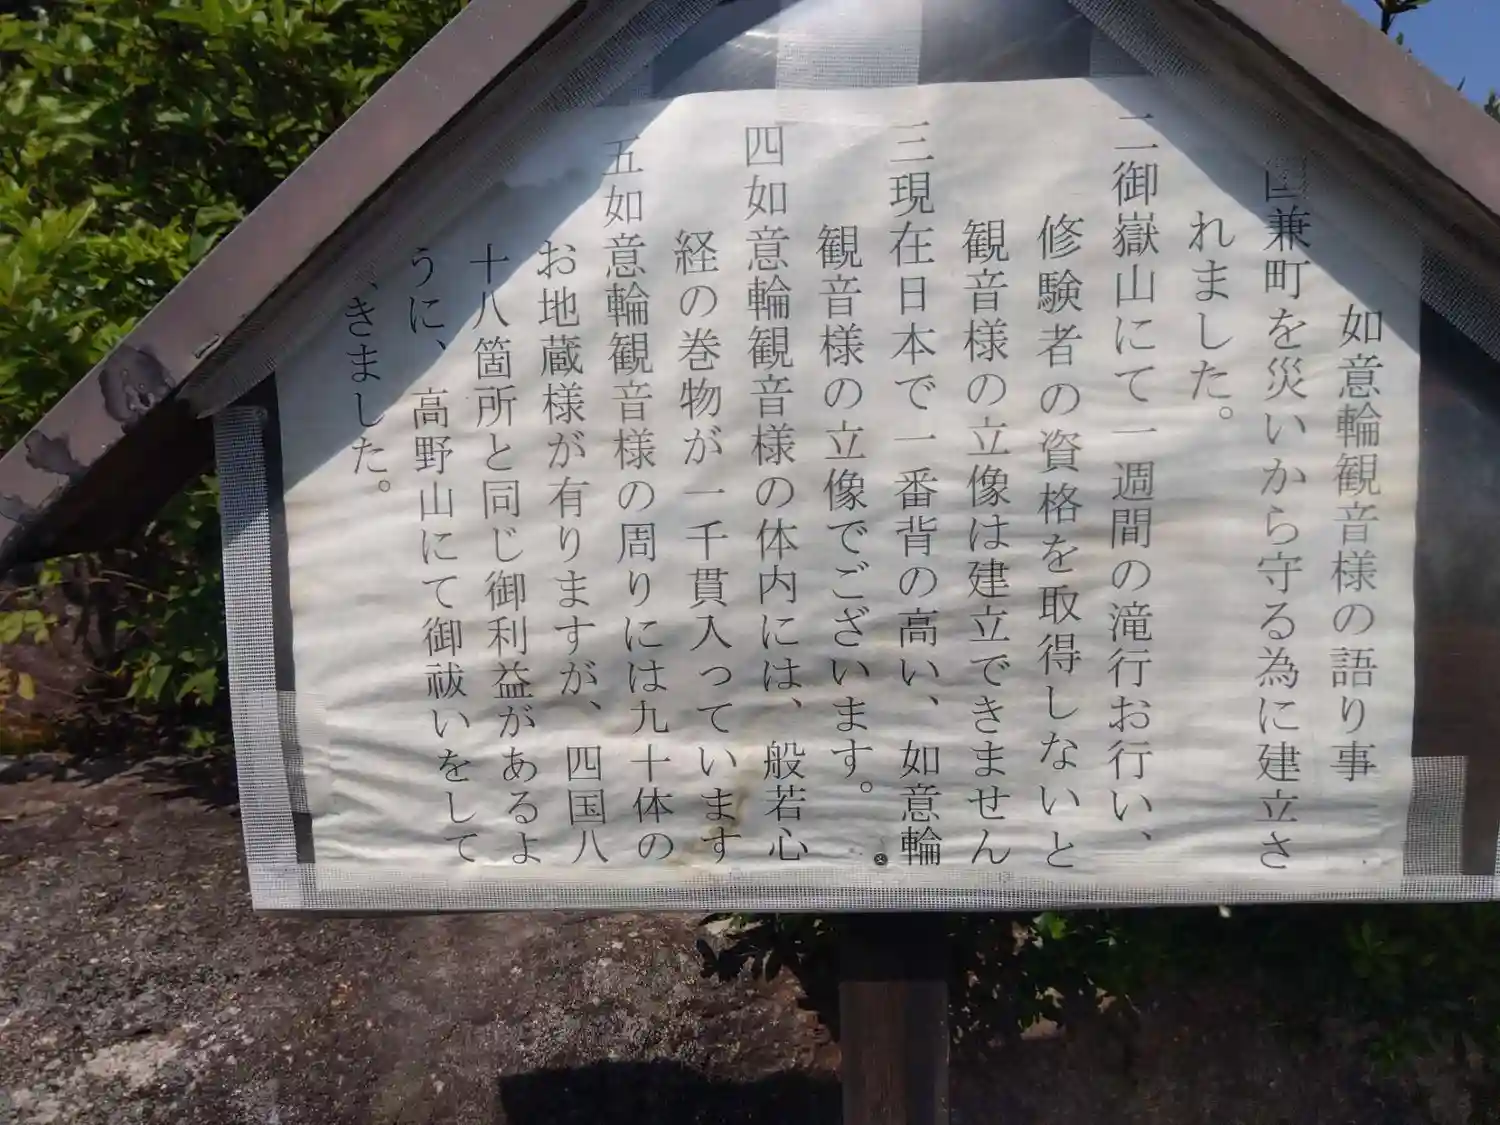 如意輪観音様の語り事
兼町を災いから守る為に建立さ
れました。
二御嶽山にて一週間の滝行お行い、
修験者の資格を取得しないと
観音様の立像は建立できません
三現在日本で一番背の高い、如意輪
観音様の立像でございます。
四如意輪観音様の体内には、般若心
経の巻物が一千貫入っています
五如意輪観音様の周りには九十体の
お地蔵様が有りますが、四国八
十八箇所と同じ御利益があるよ
うに、高野山にて御祓いをして
きました。